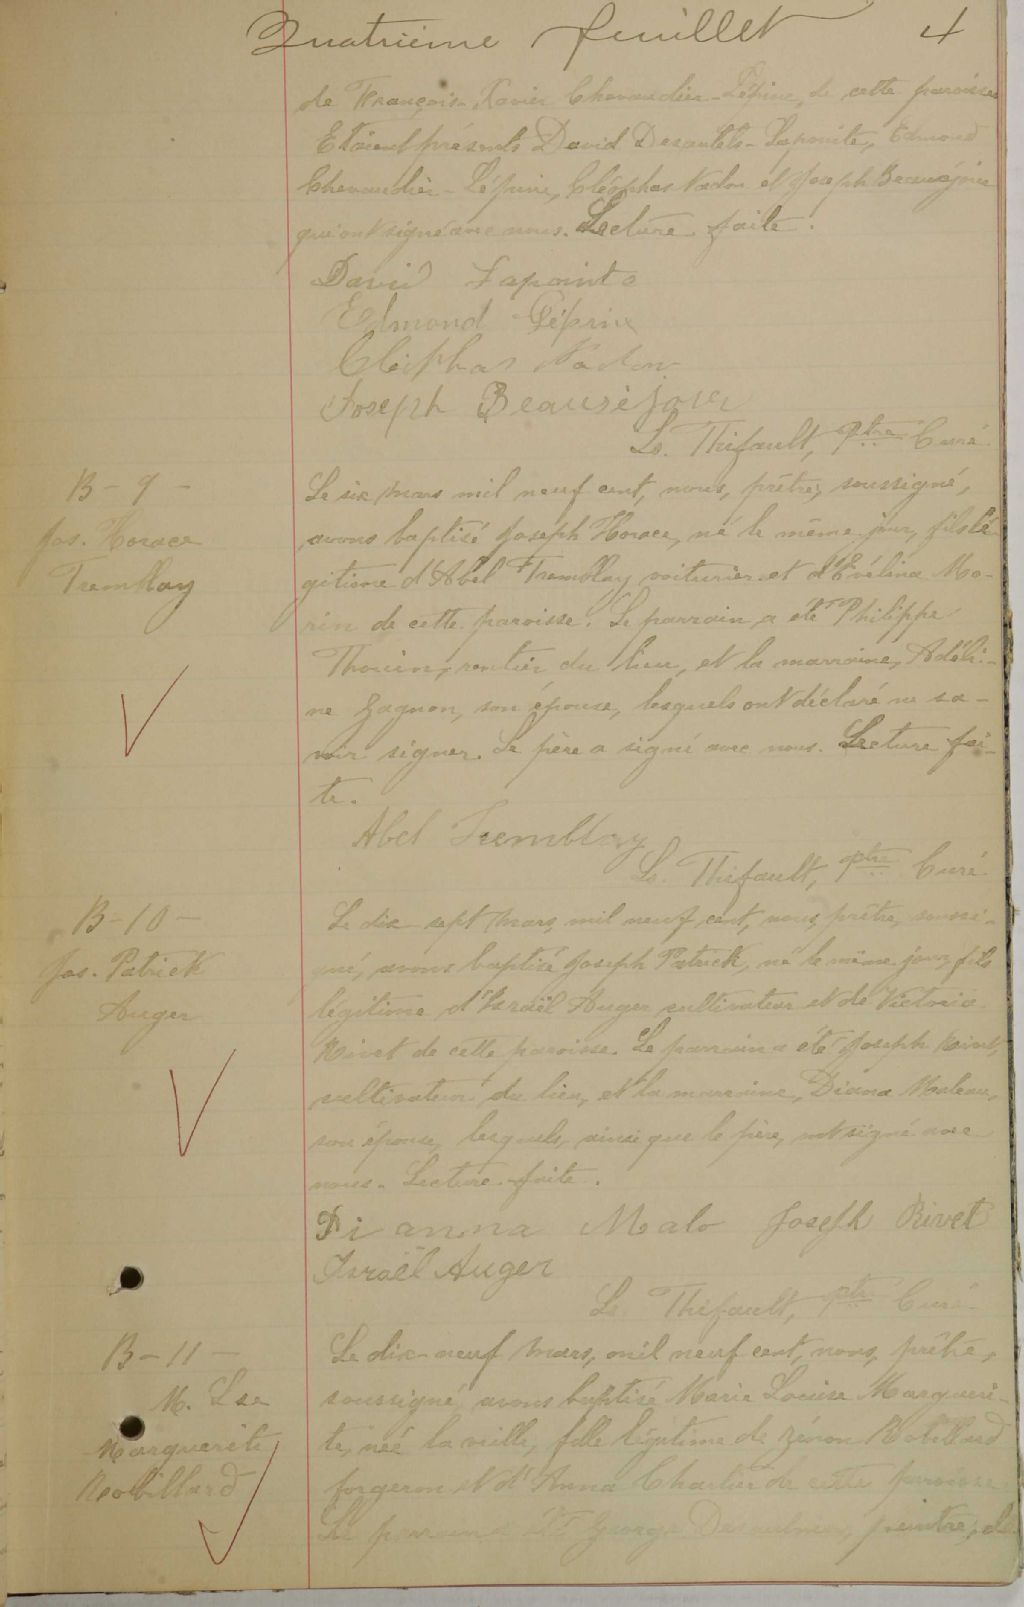 Quatrième feuillet 4
de François-Xavier Chevaudier-Lépine, de cette paroisse
Etaient présents David Desautels-Lapointe, Edmond
Chevaudier-Lépine, Cléophas Nadon et Joseph Beauséjour
qui ont signé avec nous. Lecture faite.
David Lapointe
Edmond Lépine
Cléophas Nadon
Joseph Beauséjour
Ls. Thifault, Ptre Curé
B-9-
Jos. Horace
Tremblay
Le six mars mil neuf cent, nous, prêtre, soussigné,
avons baptisé Joseph Horace, né le même jour, fils lé-
gitime d'Abel Tremblay, voiturier et d'Evélina Mo-
rin de cette paroisse. Le parrain a été Philippe
Thouin, rentier du lieu, et la marraine, Adéli-
ne Gagnon, son épouse, lesquels ont déclaré ne sa-
voir signer. Le père a signé avec nous. Lecture fai-
te.
Abel Tremblay
Ls. Thifault, ptre Curé
B-10-
Jos. Patrick
Auger
Le dix sept mars, mil neuf cent, nous, prêtre, soussi-
gné, avons baptisé Joseph Patrick, né le même jour, fils
légitime d'Israël Auger cultivateur et de Victoria
Rivet de cette paroisse. Le parrain a été Joseph Rivet,
cultivateur du lieu, et la marraine, Diana
son épouse, lesquels, ainsi que le père, ont signé avec
nous. Lecture faite.
Dianna Malo Joseph Rivet
Israël Auger
Ls. Thifault, ptre Curé
B-11-
M. Lse
Marguerite
Robillard
Le dix-neuf mars, mil neuf cent, nous, prêtre,
soussigné, avons baptisé Marie Louise Margueri-
te, née la veille, fille légitime de Zénon Robillard
forgeron et d'Anna Chartier de cette paroisse
Le parrain a été George peintre, de